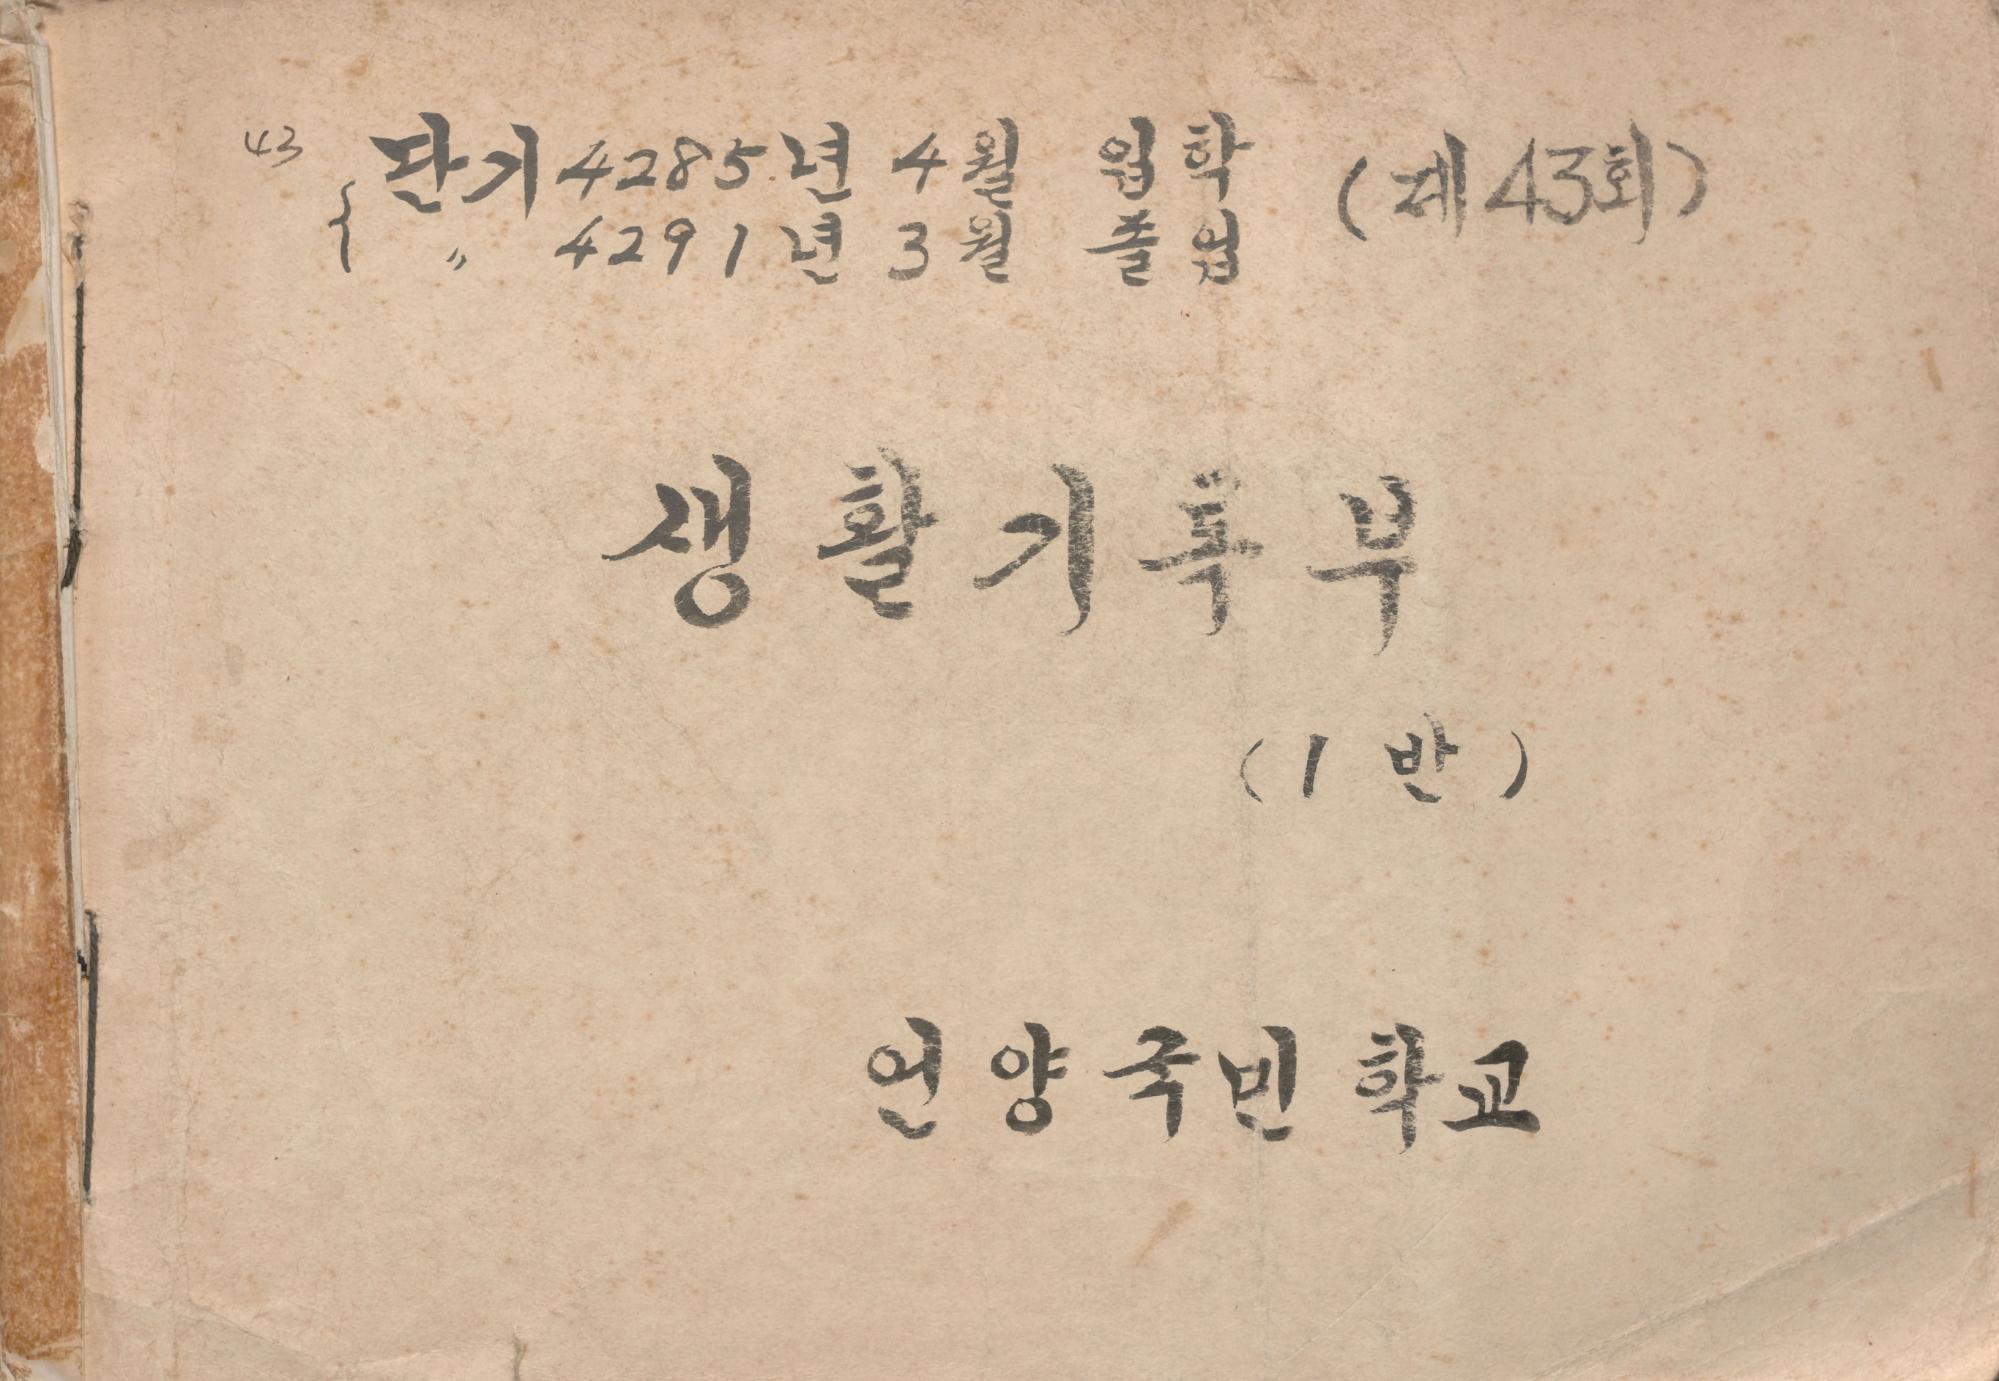 43
단기 4285년 4월 입학 (제43회)
〃 4291년 3월 졸업
생활기록부
(1반)
언양국민학교